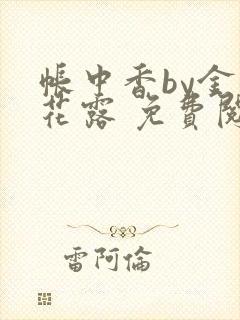 帳中香by金
花露 免費閱
雷阿倫